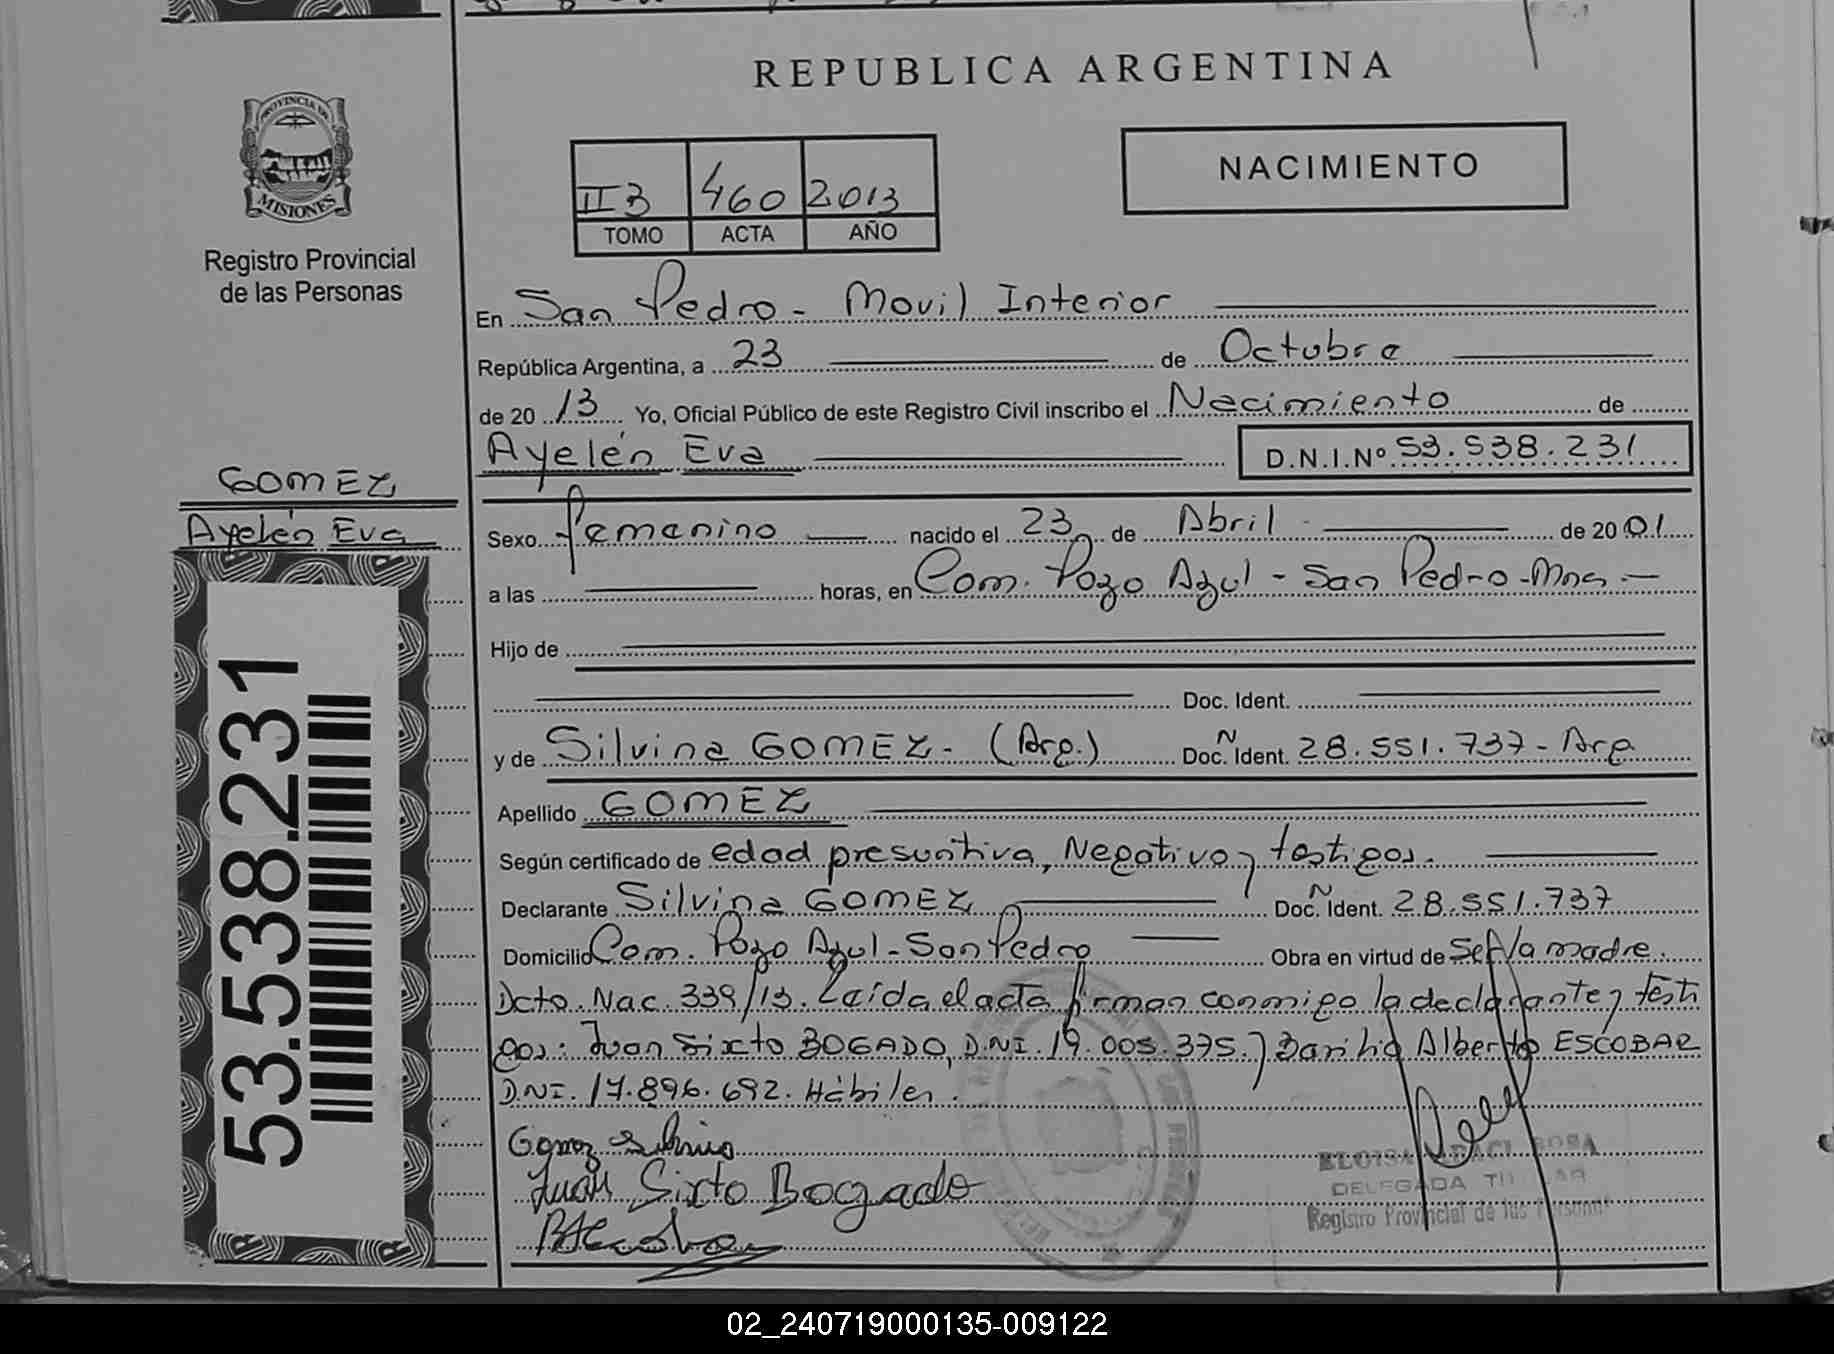 REPUBLICA ARGENTINA
PROVINCIA DE
MISIONES
Registro Provincial
de las Personas
NACIMIENTO
II 3 460 2013
TOMO ACTA AÑO
En San Pedro - Movil Interior
República Argentina, a 23 de Octubre
de 20 13 Yo, Oficial Público de este Registro Civil inscribo el Nacimiento de
Ayelén Eva D.N.I.Nº 53.538.231
GOMEZ
Ayelén Eva
Sexo femenino nacido el 23 de Abril de 20 01
a las horas, en Com. Pozo Azul - San Pedro - Mnes -
Hijo de
Doc. Ident.
y de Silvina GOMEZ - (Arg.) Doc. N Ident. 28.551.737 - Arg
Apellido GOMEZ
Según certificado de edad presuntiva, Negativo y testigos.
Declarante Silvina GOMEZ Doc. N Ident. 28.551.737
Domicilio Com. Pozo Azul - San Pedro Obra en virtud de Ser la madre.
Dcto. Nac. 339/13. Leída el acta firman conmigo la declarante y testi
gos: Juan Sixto BOGADO, D.N.I. 19.005.375. y Alberto ESCOBAR
D.N.I. 17.896.692. Hábiles.
Gomez Silvina
Juan Sixto Bogado
ELOISA
DELEGADA TITULAR
Registro Provincial de las Personas
53.538.231
02_240719000135-009122